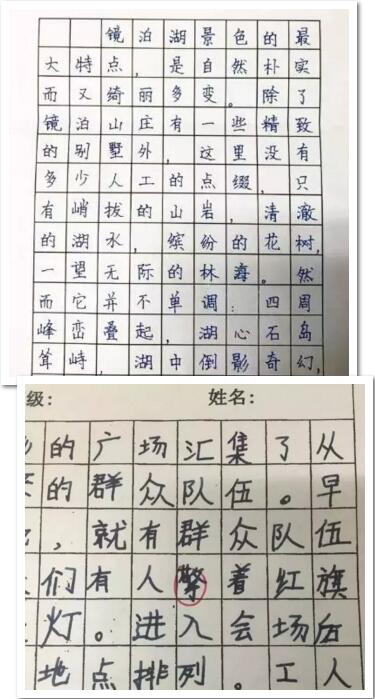 镜泊湖景色的最
大特点，是自然朴实
而又绮丽多变。除了
镜泊山庄有一些精致
的别墅外，这里没有
多少人工的点缀，只
有峭拔的山岩，清澈
的湖水，缤纷的花树，
一望无际的林海。然
而它并不单调：四周
峰峦叠起，湖心石岛
耸峙，湖中倒影奇幻，
级： 姓名：
的广场汇集了从
的群众队伍。早
，就有群众队伍
们有人擎着红旗
灯。进入会场后
地点排列。工人